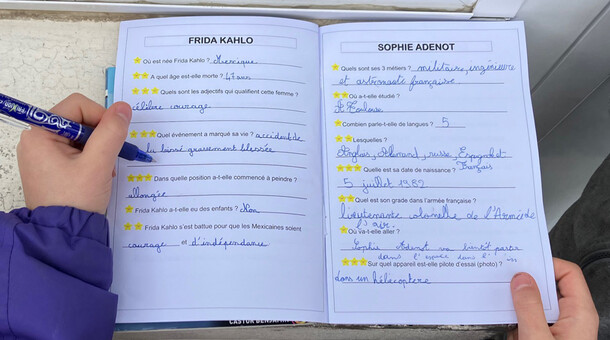 FRIDA KAHLO
Où est née Frida Kahlo ? Mexique
A quel âge est-elle morte ? 47 ans
Quels sont les adjectifs qui qualifient cette femme ?
célèbre courage
Quel événement a marqué sa vie ? accident de
la laissé gravement blessée
Dans quelle position a-t-elle commencé à peindre ?
allongée
Frida Kahlo a-t-elle eu des enfants ? Non
Frida Kahlo s'est battue pour que les Mexicaines soient
courage et d'indépendance
SOPHIE ADENOT
Quels sont ses 3 métiers ? militaire, ingénieure
et astronaute française
Où a-t-elle étudié ?
à Toulouse
Combien parle-t-elle de langues ? 5
Lesquelles ?
Anglais, Allemand, russe, Espagnol et
Français
Quelle est sa date de naissance ?
5 juillet 1982
Quel est son grade dans l'armée française ?
lieutenante colonelle de l'Armée de
l'air.
Où va-t-elle aller ?
Sophie Adenot va bientôt partir
dans l'espace dans l'
Sur quel appareil est-elle pilote d'essai (photo) ?
dans un hélicoptère
CASTOR BENJAMIN